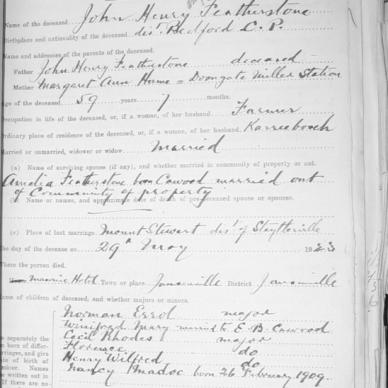 Name of the deceased John Henry Featherstone
Birthplace and nationality of the deceased dis. Bedford C. P.
Names and addresses of the parents of the deceased.
Father John Henry Featherstone deceased
Mother Margaret Ann Miller Station
Age of the deceased 59 years 7 months.
Occupation in life of the deceased, or, if a woman, of her husband Farmer
Ordinary place of residence of the deceased, or, if a woman, of her husband. Karreebosch
Married or unmarried, widower or widow. Married
(a) Name of surviving spouse (if any), and whether married in community of property or not.
Amelia Featherstone born Cawood married out
of Community of property
(b) Name or names, and approximate date of death of pre-deceased spouse or spouses.
(c) Place of last marriage. Mount Stewart dis. of Steytlerville
The day of the decease on 29th May 1923
Where the person died.
Hotel Town or place Jansenville District Jansenville
Names of children of deceased, and whether majors or minors.
Norman Errol major
Winifred Mary married to E. B. Cawood
Cecil Rhodes major
Florence do
Henry Wilfred do
Nancy Madoc born 26 February 1909.